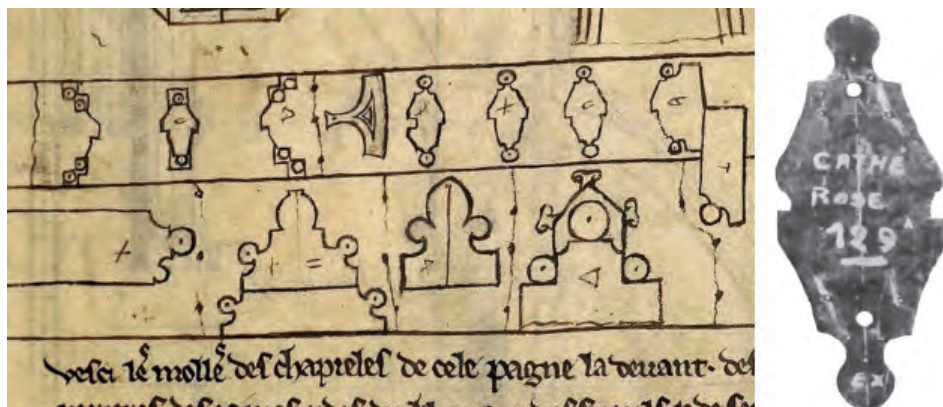 vesci le molle des chapieles de cele pagne la devant. des
CATHE
ROSE
129 A
EX